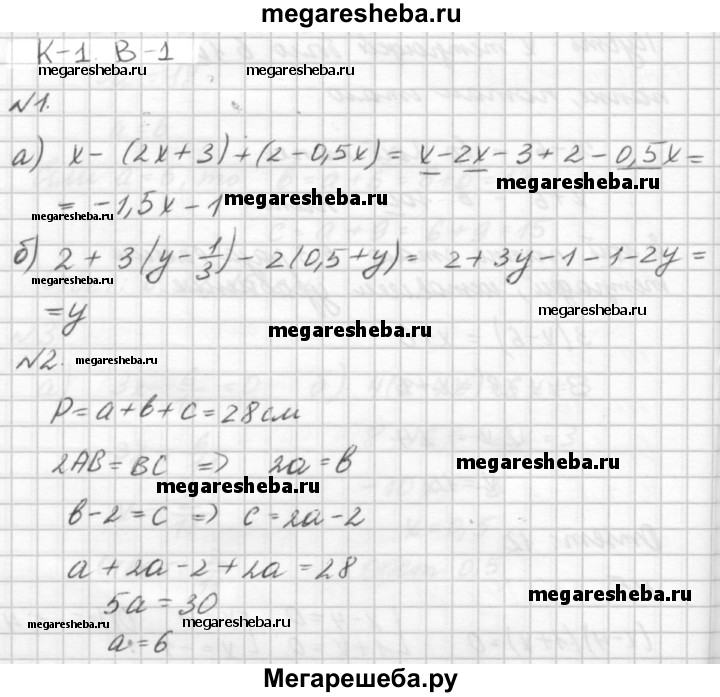 megaresheba.ru
К-1. В-1
megaresheba.ru megaresheba.ru megaresheba.ru
№1.
а) x - (2x + 3) + (2 - 0,5x) = x - 2x - 3 + 2 - 0,5x =
megaresheba.ru
= -1,5x - 1
megaresheba.ru megaresheba.ru
б) 2 + 3(y - 1/3) - 2(0,5 + y) = 2 + 3y - 1 - 1 - 2y =
megaresheba.ru
= y
megaresheba.ru
megaresheba.ru
№2.
megaresheba.ru
P = a + b + c = 28 см
2AB = BC => 2a = b
megaresheba.ru
megaresheba.ru
b - 2 = c => c = 2a - 2
a + 2a - 2 + 2a = 28
megaresheba.ru
5a = 30
megaresheba.ru
a = 6
megaresheba.ru
Мегарешеба.ру